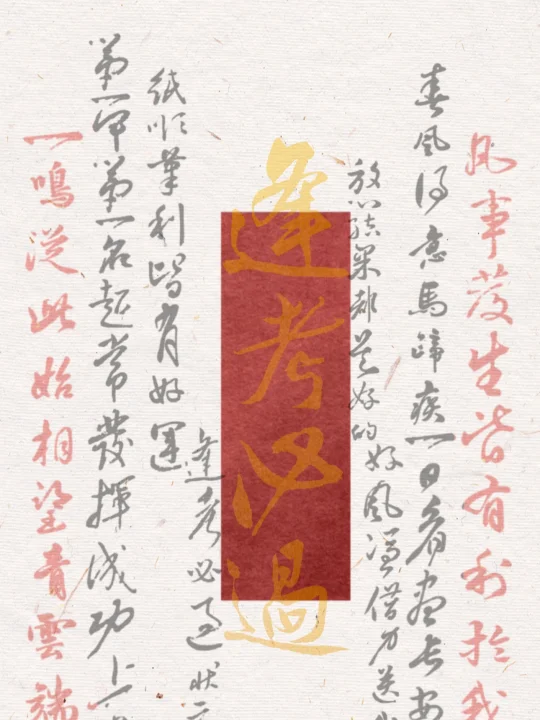 凡事發生皆有利於我
春風得意馬蹄疾一日看盡長安
放心結果都是好的好風憑借力送我
逢考必過
逢考必過狀元
紙順筆利皆有好運
第一甲第一名超常發揮成功上
一鳴從此始相望青雲端